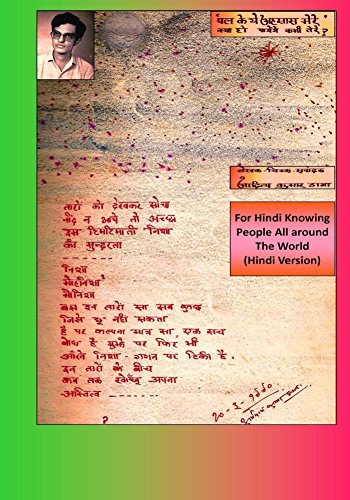 पल के ये अहसास मेरे
क्या हो पायेंगे कभी तेरे ?
लेखक - चित्रक -
आदित्य कुमार डागा
For Hindi Knowing
People All around
The World
(Hindi Version)
तारों को देखकर सोचा
नींद न आये तो अच्छा
इस टिमटिमाती "निशा
की सुन्दरता
------
निशा
मोहनिशा
मोनिशा
बस इन तारों सा सब कुछ
जिसे छू नहीं सकता
है पर कल्पना मात्र सा, एक सच
बोध है मुझे पर फिर भी
आँखें निशा - गगन पर टिकी हैं.
इन तारों के बीच
कब तक अपना
-अस्तित्व ----